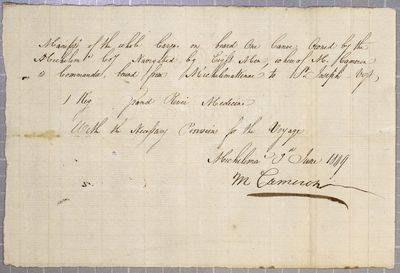 Manifest of the whole Cargo on board One Canoe, Owned by the
Michilim Coy Navigated by Eight Men, whereof M. Cameron
is Commander, bound from Michilimakinac to St. Joseph
1 Keg Medicine
With the Necessary Provision for the Voyage
June
M Cameron